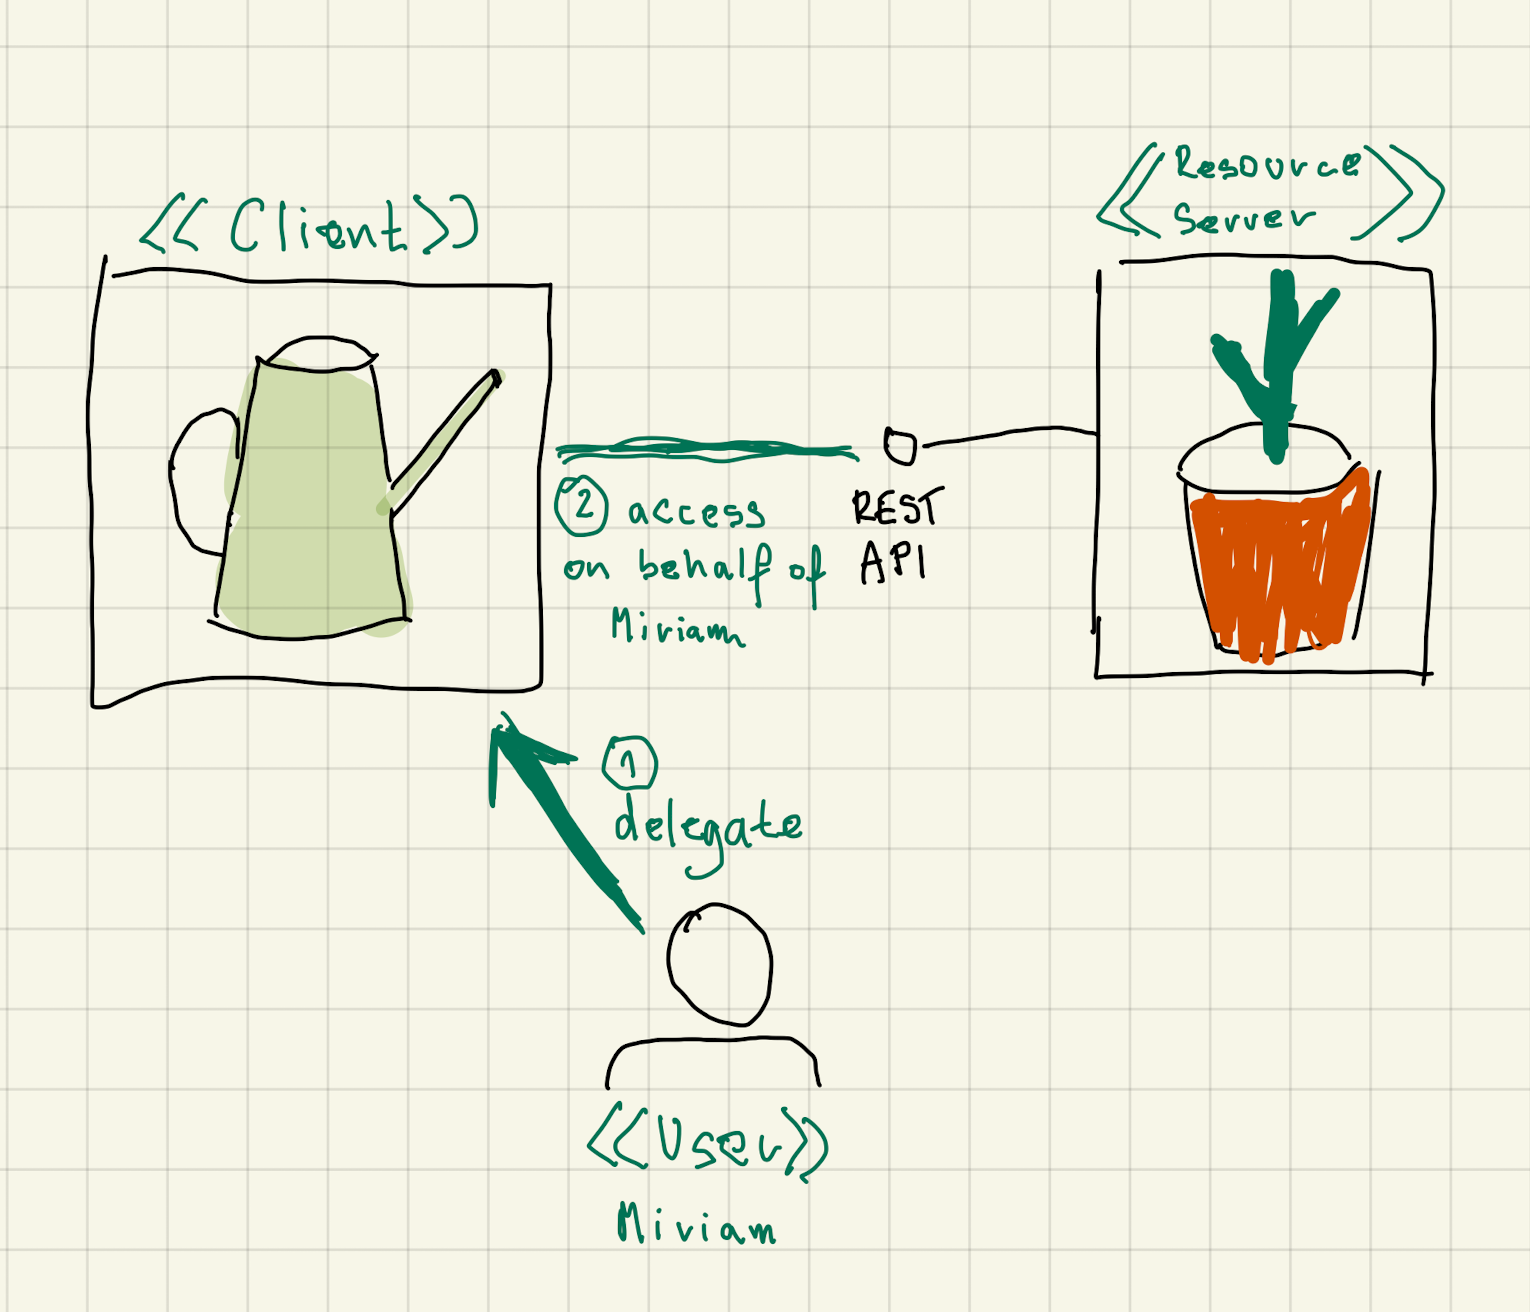 <<Resource
Server>>
<<Client>>
② access
on behalf of
Miriam
REST
API
①
delegate
<<User>>
Miriam